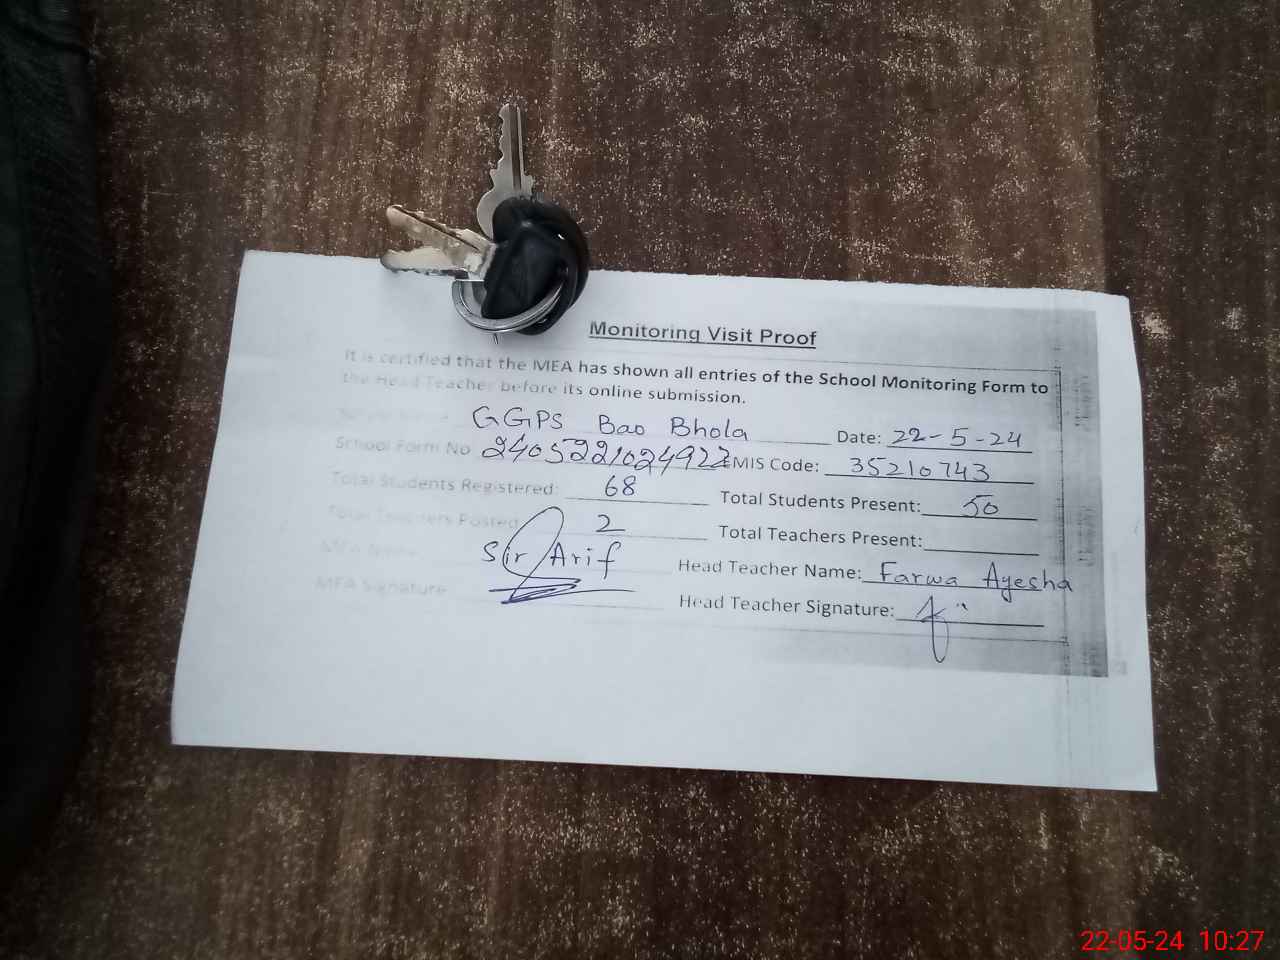 Monitoring Visit Proof
It is certified that the MEA has shown all entries of the School Monitoring Form to
the Head Teacher before its online submission.
School Name GGPS Bao Bhola Date: 22-5-24
School Form No 2405221024922 EMIS Code: 35210743
Total Students Registered: 68 Total Students Present: 50
Total Teachers Posted 2 Total Teachers Present:
MEA Name Sir Arif Head Teacher Name: Farwa Ayesha
MEA Signature Head Teacher Signature:
22-05-24 10:27